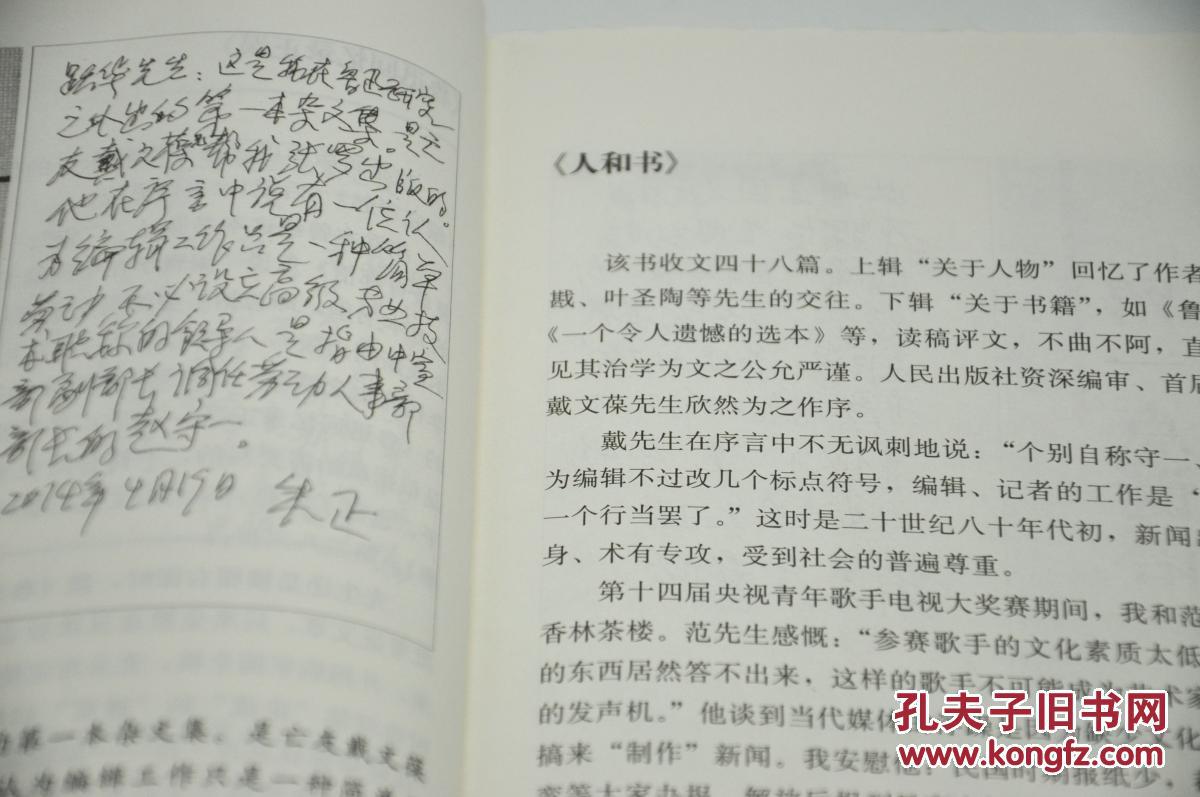 跃华先生：这是我在鲁迅研究
之外出的第一本杂文集。是亡
友戴文葆帮我张罗出版的。
他在序言中说有一位认
为编辑工作只是一种简单
劳动不必设立高级专业技
术职称的领导人是指由中宣
部副部长调任劳动人事部
部长的赵守一。
2014年4月19日 朱正
的第一本杂文集。是亡友戴文葆
认为编辑工作只是一种简单
《人和书》
该书收文四十八篇。上辑“关于人物”回忆了作者
戡、叶圣陶等先生的交往。下辑“关于书籍”，如《鲁
《一个令人遗憾的选本》等，读稿评文，不曲不阿，直
见其治学为文之公允严谨。人民出版社资深编审、首届
戴文葆先生欣然为之作序。
戴先生在序言中不无讽刺地说：“个别自称守一、
为编辑不过改几个标点符号，编辑、记者的工作是‘
一个行当罢了。”这时是二十世纪八十年代初，新闻出
身、术有专攻，受到社会的普遍尊重。
第十四届央视青年歌手电视大奖赛期间，我和范
香林茶楼。范先生感慨：“参赛歌手的文化素质太低
的东西居然答不出来，这样的歌手不可能成为艺术家
的发声机。”他谈到当代媒体
文化
搞来“制作”新闻。我安慰他：民国时期报纸少，
栾等大家办报，解放后报
孔夫子旧书网
www.kongfz.com